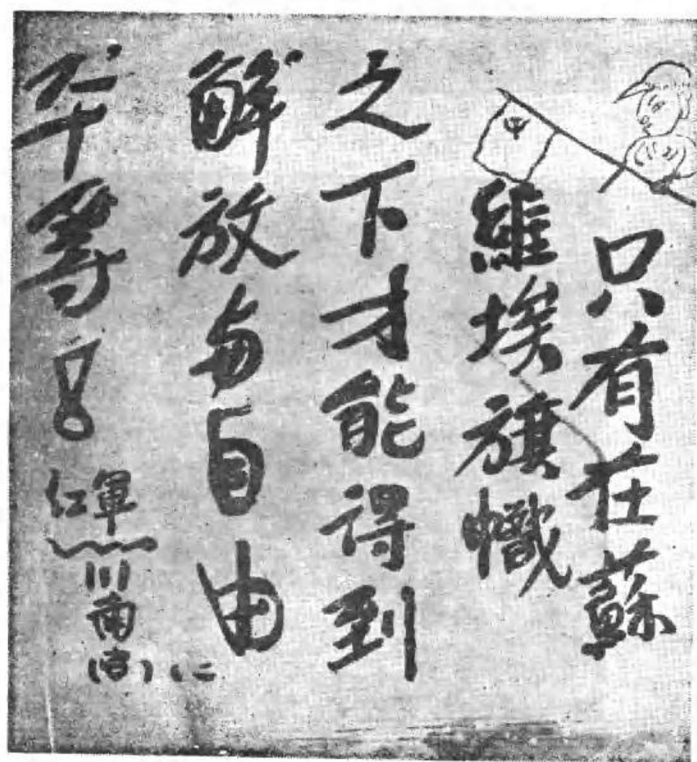 只有在蘇
維埃旗幟
之下才能得到
解放与自由
平等！
红軍
川南